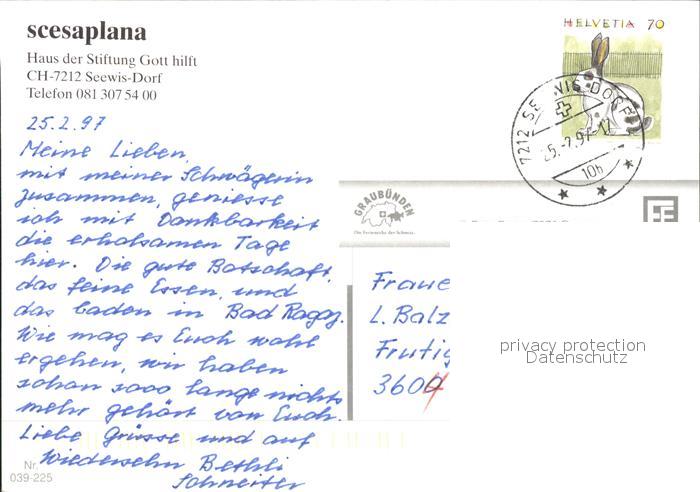 scesaplana
Haus der Stiftung Gott hilft
CH-7212 Seewis-Dorf
Telefon 081 307 54 00
25.2.97
Meine Lieben,
mit meiner Schwägerin
zusammen, geniesse
ich mit Dankbarkeit
die erholsamen Tage
hier. Die gute Botschaft,
das feine Essen, und
das baden in Bad Ragaz.
Wie mag es Euch wohl
ergehen, wir haben
schon sooo lange nichts
mehr gehört von Euch.
Liebe Grüsse und auf
Wiedersehn Bethli
Schneiter
Nr.
039-225
HELVETIA 70
7212 SEEWIS-DORF
10h
GRAUBÜNDEN
Die Ferienecke der Schweiz.
Fraue
L. Balz
Frutig
3600
privacy protection
Datenschutz